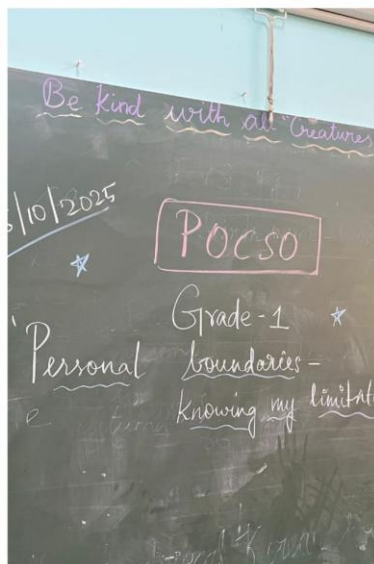 Be kind with all "Creatures
/10/2025
POCSO
Grade-1
Personal boundaries-
knowing my limitat